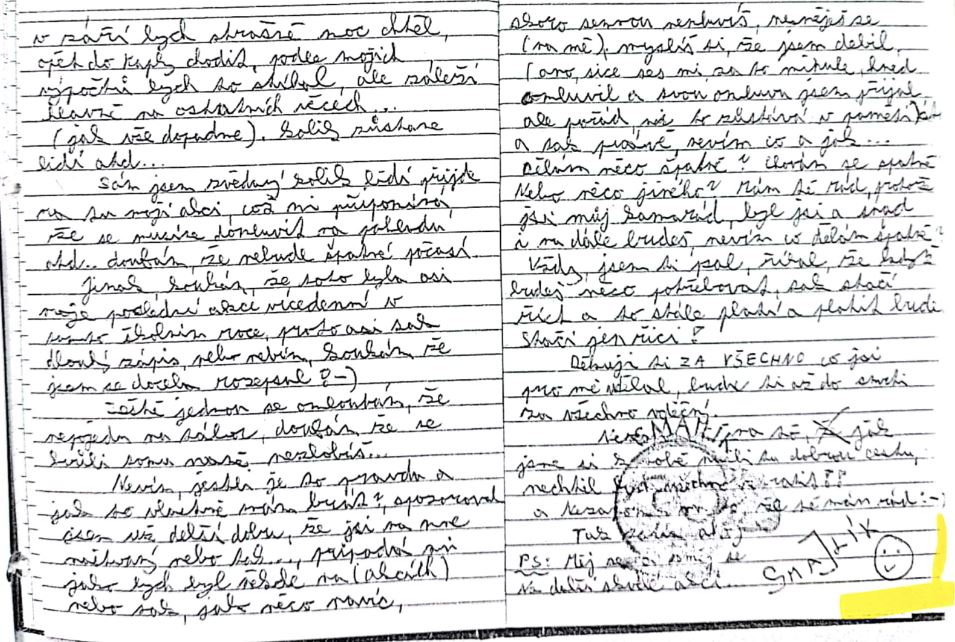 v září bych strašně moc chtěl,
opět do kaply chodit, podle mojich
výpočtů bych to stíhal, ale záleží
hlavně na ostatních věcech...
(jak vše dopadne). kolik zůstane
lidí atd...
Sám jsem zvědavý kolik lidí přijde
na tu moji akci, což mi připomíná,
že se musíme domluvit na pohledu
atd.. doufám, že nebude špatné počasí
Jinak koukám, že toto byla asi
moje poslední akce vícedenní v
tomto školním roce, proto asi tak
dlouhý zápis, nebo nevím, koukám že
jsem se docela rozepsal?-)
Ještě jednou se omlouvám, že
nepojedu na tábor, doufám že se
kvůli tomu nezlobíš...
Nevím, jestli je to pravda a
jak to vlastně mám brát?, zpozoroval
jsem už delší dobu, že jsi na mne
naštvaný nebo tak..., připadá mi
jako bych byl někde na (akcích)
nebo tak, jako něco navíc,
skoro semnou nemluvíš, nesměješ se
(na mě), myslíš si, že jsem debil,
(ano, sice ses mi za to hned
omluvil a svou omluvu jsem přijal
ale pořád mi to zůstává v paměti)
a tak prostě, nevím co a jak...
Dělám něco špatně? Chovám se špatně
Nebo něco jiného? Mám tě rád, protož
jsi můj kamarád, byl jsi a snad
i na dále budeš, nevím co dělám špatně?
Vždy, jsem ti psal, říkal, že když
budeš něco potřebovat, tak stačí
říct a to stále platí a platit bude
stačí jen říci?
Děkuji ti ZA VŠECHNO co jsi
pro mě udělal, budu ti až do smrti
za všechno vděčný.
jak
jsme si k sobě našli tu dobrou cestu,
nechtěl bych
a nezapomeň že tě mám rád:-)
Tak zatím ahoj
PS: Měj se
na další skvělé akci..